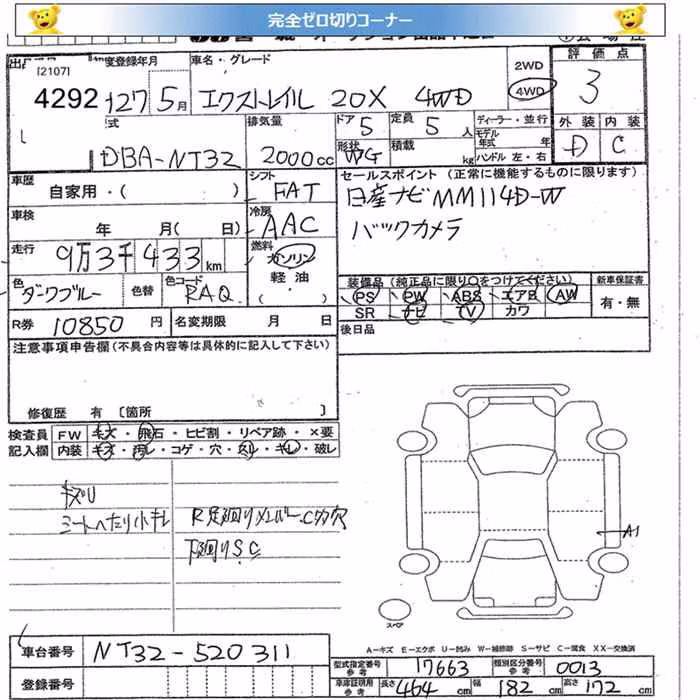 完全ゼロ切りコーナー
[2107]
初度登録年月
車名・グレード
評価点
4292
H27 5月
エクストレイル 20X 4WD
2WD
4WD
3
排気量
ドア 5
定員 5 人
ディーラー・並行
モデル年式 年
外装 内装
DBA-NT32
2000cc
形状 WG
積載 kg
ハンドル 左・右
D C
車歴
自家用・( )
シフト FAT
セールスポイント (正常に機能するものに限ります)
日産ナビMM114D-W
車検 年 月( 日)
冷房 AAC
バックカメラ
走行 9万3千433km
燃料 ガソリン
軽油
( ・ )
色 ダークブルー
色替
色コード RAQ
装備品(純正品に限り○をつけてください)
新車保証書
PS PW ABS エアB AW
有・無
SR ナビ TV カワ
R券 10850円
名変期限 月 日
後日品
注意事項申告欄(不具合内容等は具体的に記入して下さい)
修復歴 有 [箇所 ]
検査員 FW キズ・飛石・ヒビ割・リペア跡・×要
記入欄 内装 キズ・汚レ・コゲ・穴・スレ・キレ・破レ
キズU
シートへたり小キレ
R足廻りメンバーC多穴
下廻りS.C
A1
スペア
A-キズ E-エクボ U-凹み W-補修跡 S-サビ C-腐食 XX-交換済
車台番号 NT32-520311
型式指定番号 参考 17663
類別区分番号 参考 0013
登録番号
車庫証明用 参考 長さ 464cm 幅 182cm 高さ 172cm